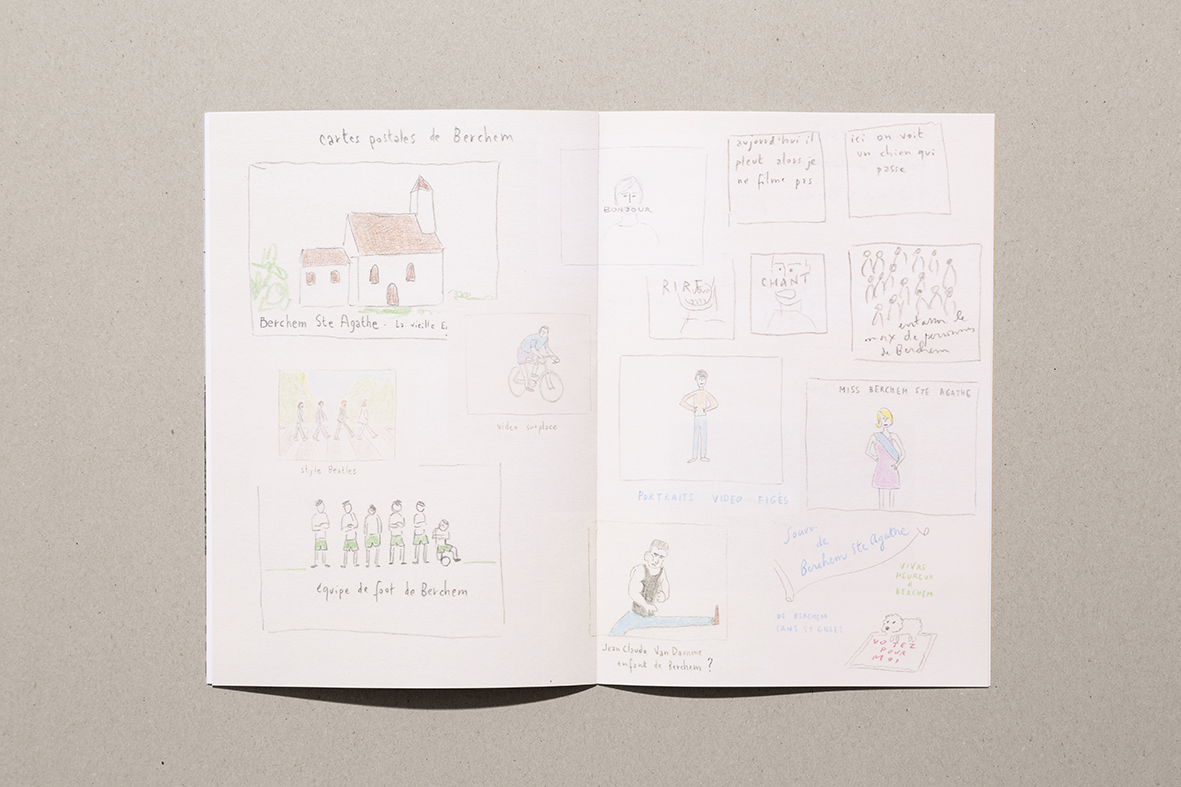 cartes postales de Berchem
Berchem Ste Agathe - La vieille E
video surplace
style Beatles
équipe de foot de Berchem
BONJOUR
aujourd'hui il
pleut alors je
ne filme pas
ici on voit
un chien qui
passe
RIRE
CHANT
entasser le
max de personnes
de Berchem
PORTRAITS VIDEO FIGÉS
MISS BERCHEM STE AGATHE
Jean Claude Van Damme
enfant de Berchem ?
de
Berchem Ste Agathe
VIVRE
HEUREUX
A
BERCHEM
DE BERCHEM
VOTEZ
POUR
MOI